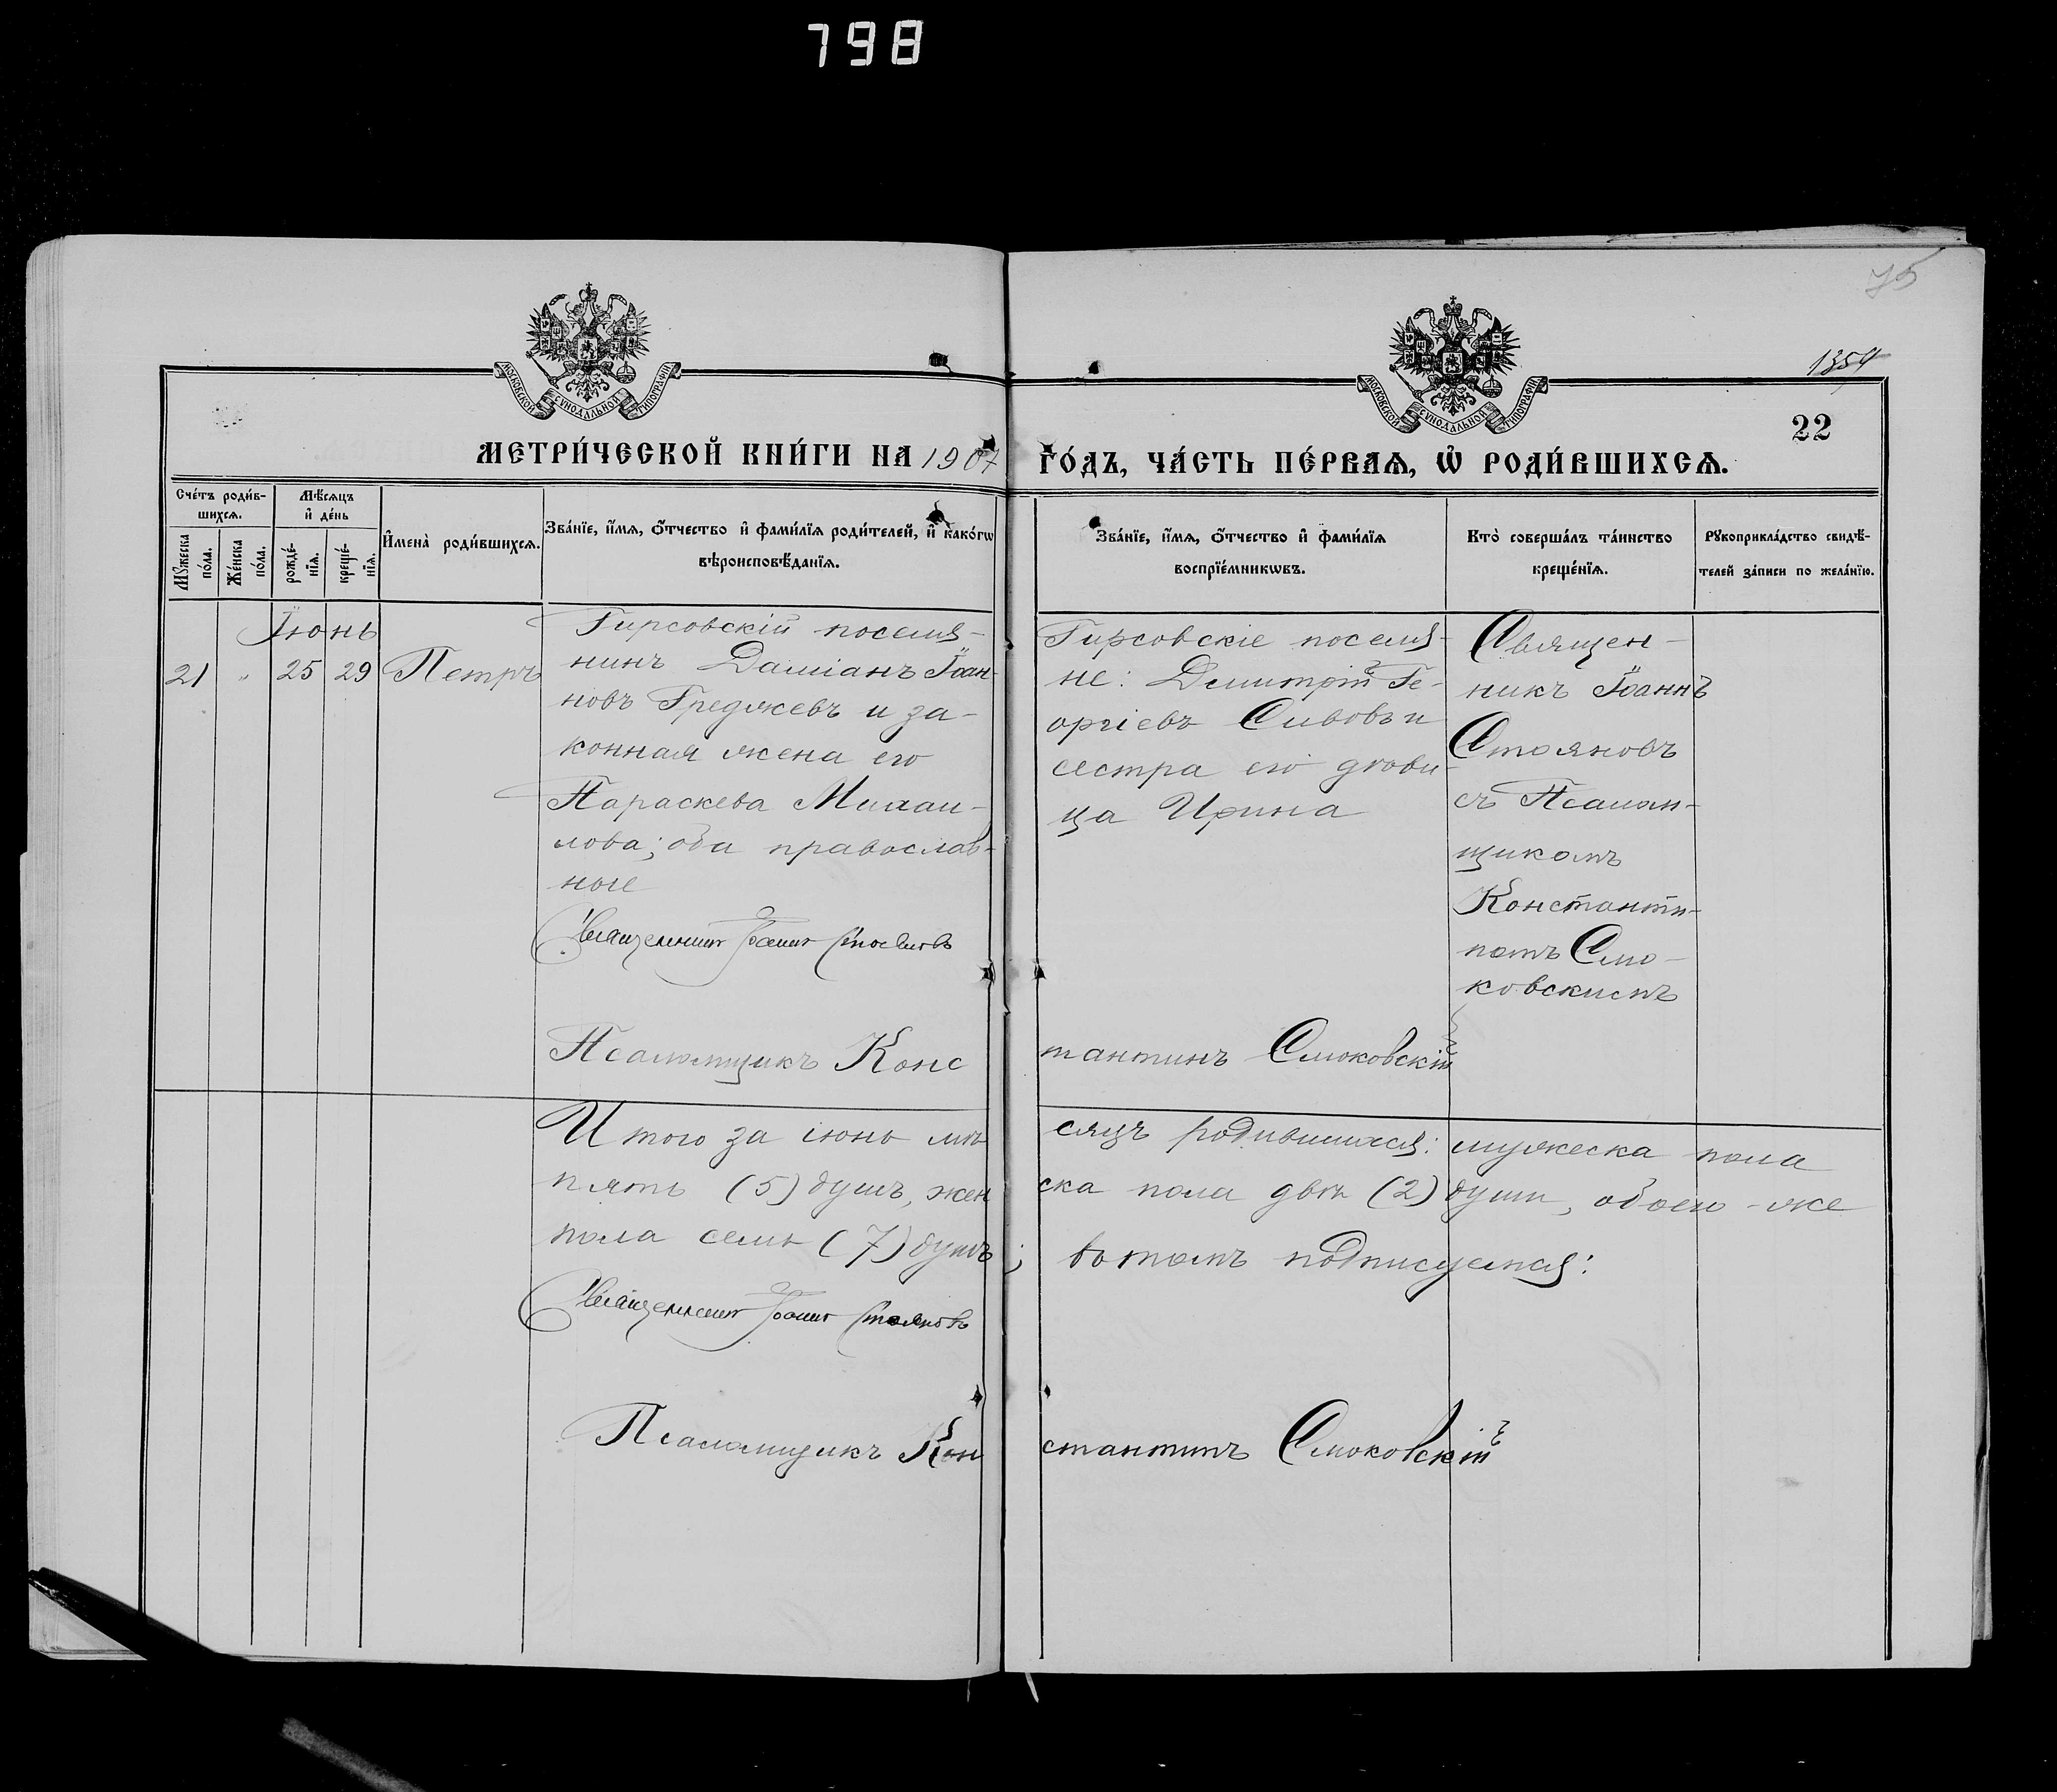 798
75
1354
22
МОСКОВСКОЙ СѴНОДАЛЬНОЙ ТИПОГРАФІИ
МОСКОВСКОЙ СѴНОДАЛЬНОЙ ТИПОГРАФІИ
МЕТРИ́ЧЕСКОЙ КНИ́ГИ НА 1907 ГО́ДЪ, ЧА́СТЬ ПЕ́РВАѦ, Ѡ҆ РОДИ́ВШИХСѦ.
Сче́тъ роди́в-
шихсѧ.
Мꙋжеска по́ла.
Же́нска по́ла.
Мѣ́сѧцъ
и҆ де́нь
рожде́-
нїѧ.
креще́-
нїѧ.
И҆мена̀ роди́вшихсѧ.
Зва́нїе, и҆́мѧ, ѻ҆́тчество и҆ фами́лїѧ роди́телей, и҆ како́гѡ
вѣроисповѣ́данїѧ.
Зва́нїе, и҆́мѧ, ѻ҆́тчество и҆ фами́лїѧ
воспрїе́мникѡвъ.
Кто̀ соверша́лъ та́инство
креще́нїѧ.
Рꙋкоприкла́дство свидѣ́-
телей за́писи по жела́нїю.
Іюнь
21 " 25 29 Петръ
Гирсовскій поселя-
нинъ Даміанъ Іоан-
новъ Греджевъ и за-
конная жена его
Параскева Михаи-
лова; оба православ-
ные
Священникъ Іоаннъ Стояновъ
Гирсовскіе поселя-
не: Димитрій Ге-
оргіевъ Сивовъ и
сестра его дѣви-
ца Ирина
Священ-
никъ Іоаннъ
Стояновъ
съ Псалом-
щикомъ
Константи-
номъ Смо-
ковскимъ
Псаломщикъ Константинъ Смоковскій
Итого за іюнь мѣсяцъ родившихся: мужеска пола
пять (5) душъ, женска пола двѣ (2) души, обоего-же
пола семь (7) душъ; въ томъ подписуемся:
Священникъ Іоаннъ Стояновъ
Псаломщикъ Константинъ Смоковскій